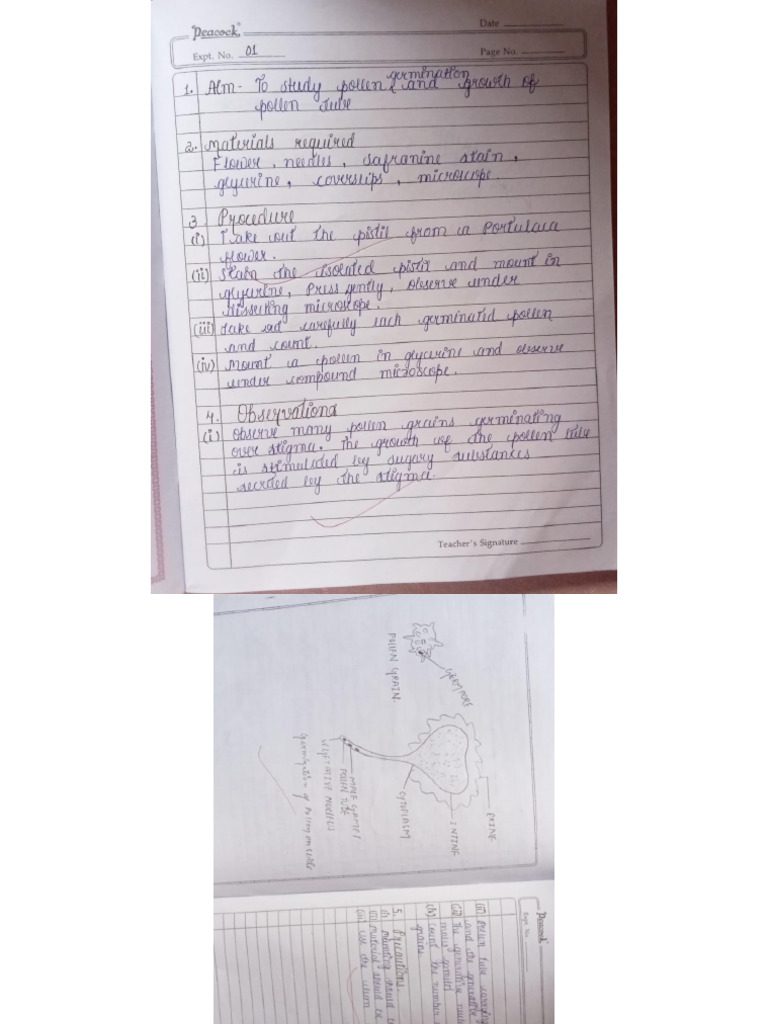 Peacock
Date
Expt. No. 01
Page No.
1. Aim - To study pollen germination and growth of
pollen tube
2. Materials required
Flower, needles, safranine stain,
glycerine, coverslips, microscope.
3 Procedure
(i) Take out the pistil from a Portulaca
flower.
(ii) Stain the isolated pistil and mount in
glycerine, press gently, observe under
dissecting microscope.
(iii) Take out carefully each germinated pollen
and count.
(iv) Mount a pollen in glycerine and observe
under compound microscope.
4. Observations
(i) Observe many pollen grains germinating
over stigma. The growth of the pollen tube
is stimulated by sugary substances
secreted by the stigma.
Teacher's Signature
GERMPORE
POLLEN GRAIN.
EXINE
INTINE
CYTOPLASM
MALE GAMET
POLLEN TUBE
Germination of Pollen on
Peacock
Expt. No.
(ii) Pollen tube carrying
and the generative
(iii) The generative nucle
male gametes
(iv) Count the number
grains.
5. Precautions.
(i) Mounting should
(ii) Material should be
(iii) Use the clean